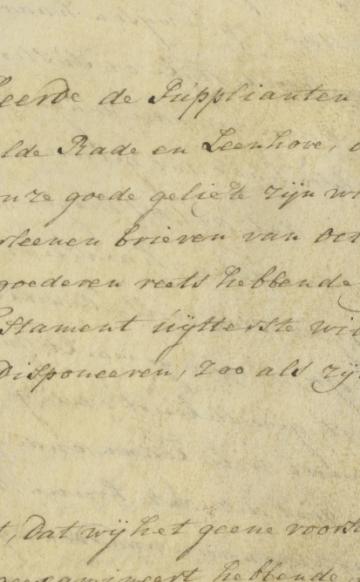 eerde de Supplianten
lde Rade en Leenhove,
onze goede geliefte zijn
rleenen brieven van oct
goederen reets hebbende
stament uijtterste wil
Disponeeren, zoo als zij
t, dat wij het geene voors
geexamineert hebbende